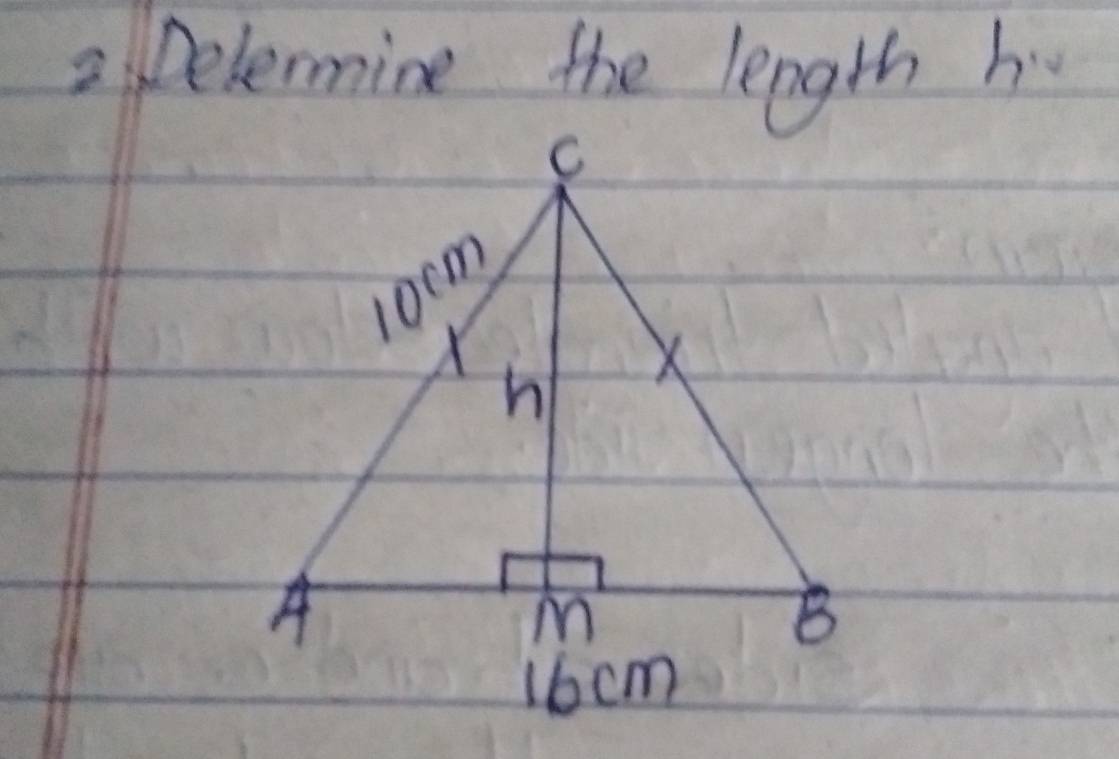 2. Determine the length h.
C
10cm
h
A M B
16cm